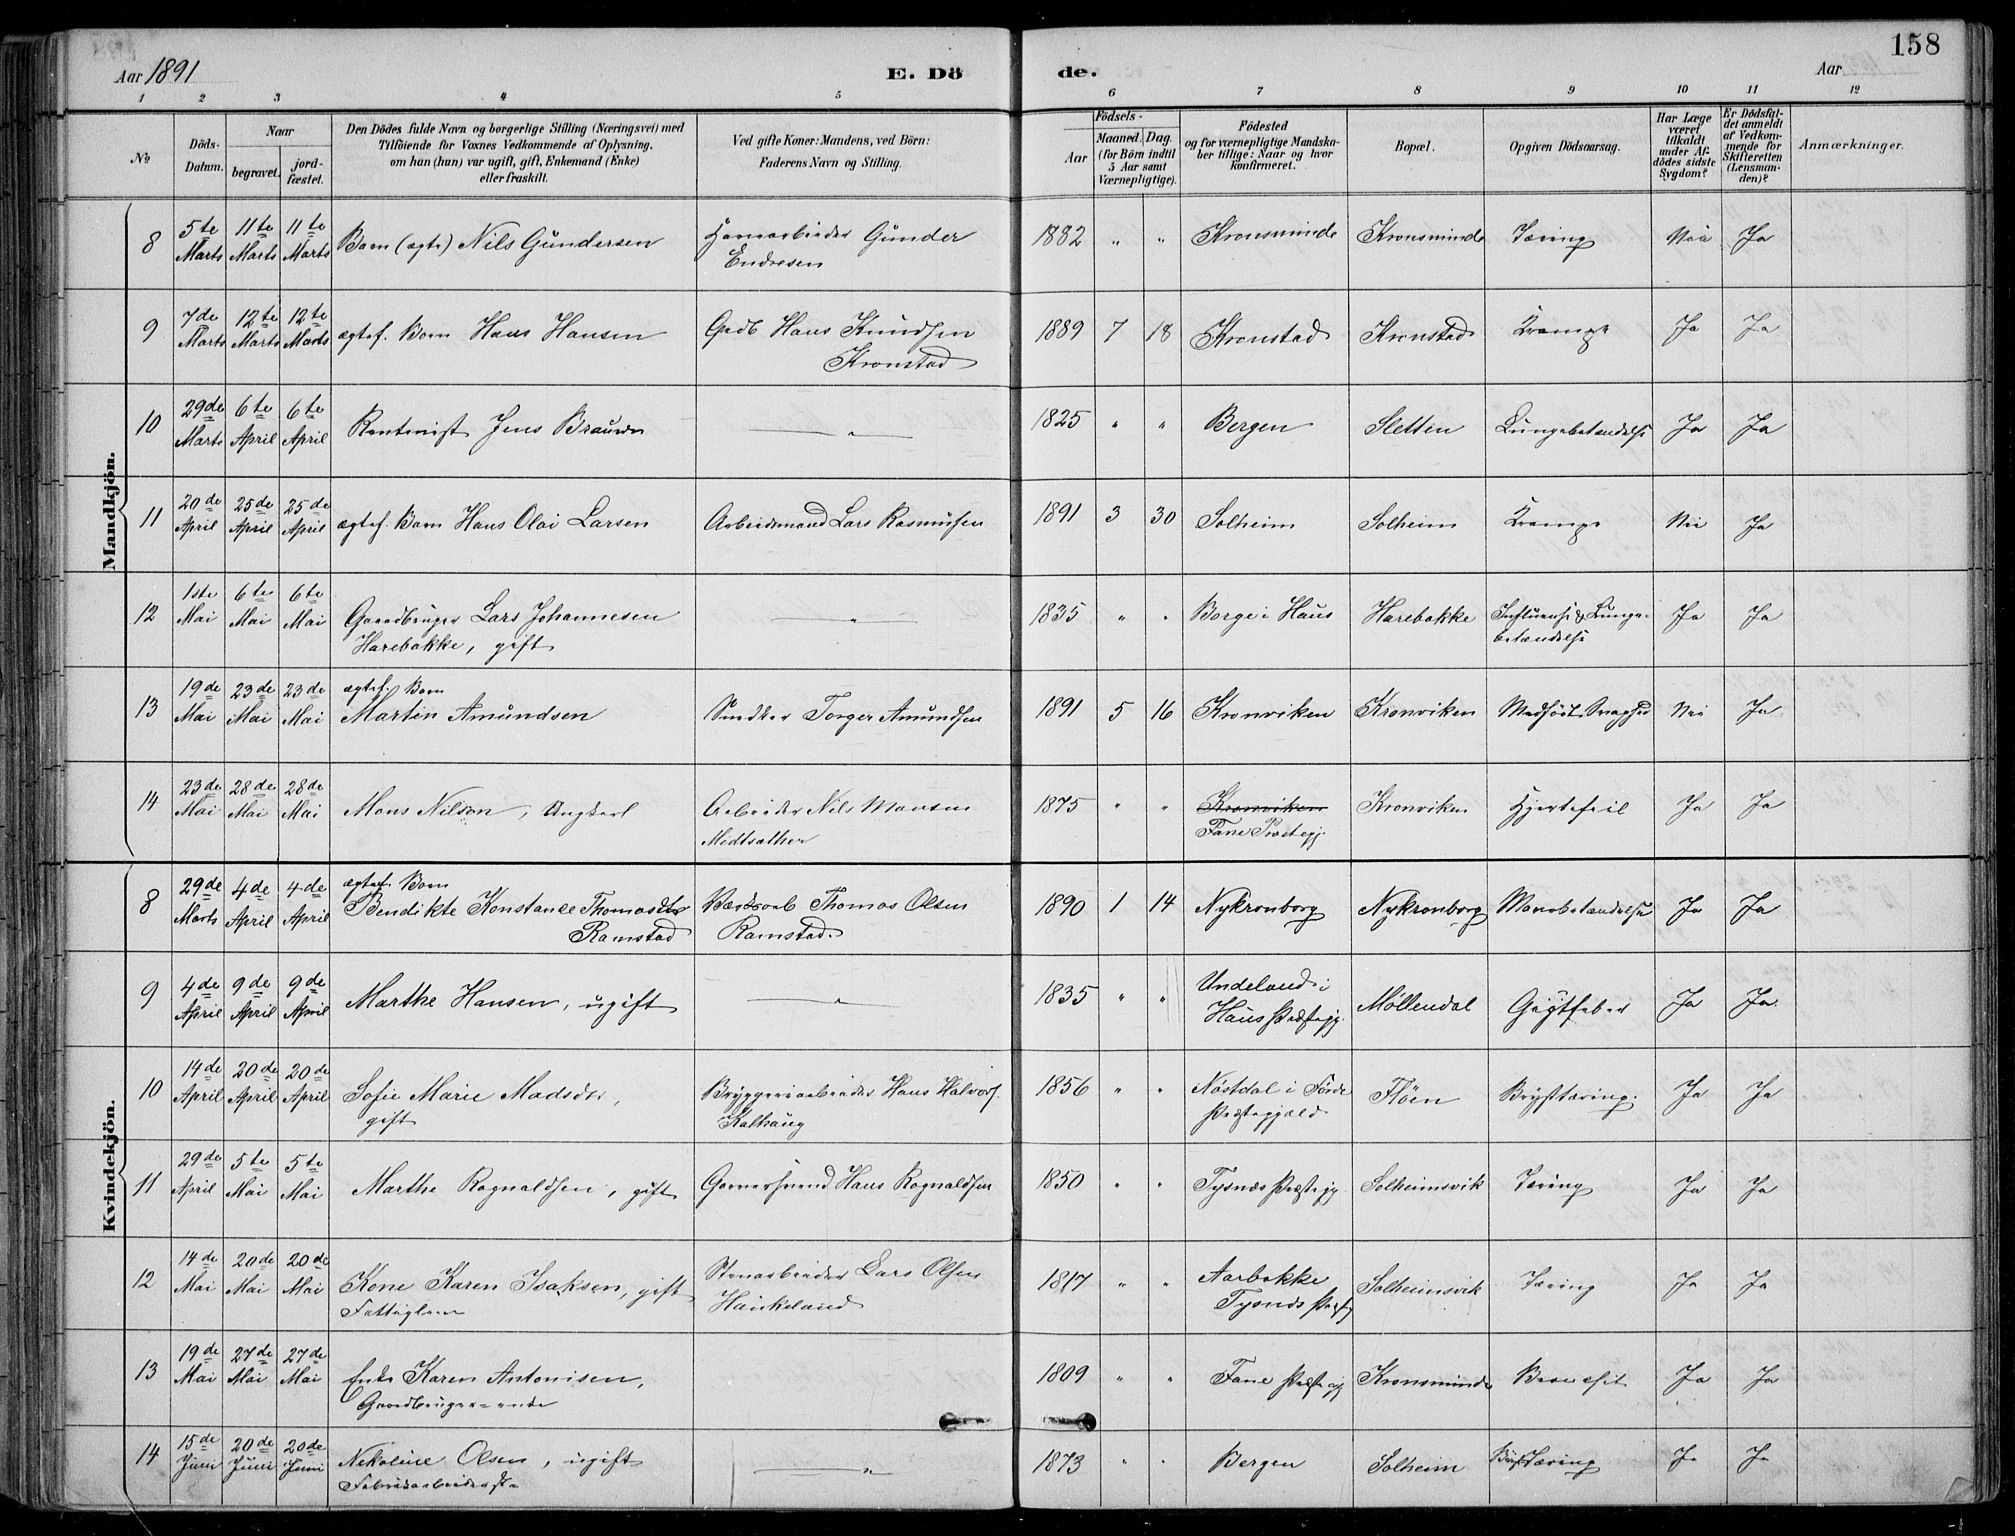 158
Aar 1891 E. Dö de. Aar
1 2 3 4 5 6 7 8 9 10 11 12
No
Döds-Datum.
Naar
begravet.
jord-fæstet.
Den Dödes fulde Navn og borgerlige Stilling (Næringsvei) med
Tilföiende for Voxnes Vedkommende af Oplysning,
om han (hun) var ugift, gift, Enkemand (Enke)
eller fraskilt.
Ved gifte Koner: Mandens, ved Börn:
Faderens Navn og Stilling.
Födsels-
Aar
Maaned. Dag.
(for Börn indtil
5 Aar samt
Værnepligtige).
Födested
og for værnepligtige Mandska-
ber tillige: Naar og hvor
konfirmeret.
Bopæl.
Opgiven Dödsaarsag.
Har Læge
været
tilkaldt
under Af-
dödes sidste
Sygdom?
Er Dödsfal-
det anmeldt
af Vedkom-
mende for
Skifteretten
(Lensman-
den)?
Anmærkninger.
Mandkjön.
8 5te Marts 11te Marts 11te Marts Barn (ægte) Nils Gundersen Havnearbeider Gunder Endresen 1882 " " Kronsminde Kronsminde Tæring Nei Ja
9 7de Marts 12te Marts 12te Marts ægtef. Barn Hans Hansen Grdb Hans Knudsen Kronstad 1889 7 18 Kronstad Kronstad Krampe Ja Ja
10 29de Marts 6te April 6te April Rentenist Jens Brauwn " 1825 " " Bergen Sletten Lungebetændelse Ja Ja
11 20de April 25de April 25de April ægtef. Barn Hans Olai Larsen Arbeidsmand Lars Rasmussen 1891 3 30 Solheim Solheim Krampe Nei Ja
12 1ste Mai 6te Mai 6te Mai Gaardbruger Lars Johannesen Harebakke, gift " 1835 " " Borge i Haus Harebakke Influensa & Lunge-betændelse Ja Ja
13 19de Mai 23de Mai 23de Mai ægtef. Barn Martin Amundsen Snedker Torger Amundsen 1891 5 16 Kronviken Kronviken Medfödt Svaghed Nei Ja
14 23de Mai 28de Mai 28de Mai Mons Nilson, Ungkarl Arbeider Nils Monsen Midtsæther 1875 " " Kronviken Fane Præstegj. Kronviken Hjertefeil Ja Ja
Kvindekjön.
8 29de Marts 4de April 4de April ægtef. Barn Bendikte Konstance Thomasdtr Ramstad Thomas Olsen Ramstad. 1890 1 14 Nykronborg Nykronborg Ja Ja
9 4de April 9de April 9de April Marthe Hansen, ugift " 1835 " " Undeland i Haus Præstegj. Möllendal Gigtfeber Ja Ja.
10 14de April 20de April 20de April Sofie Marie Madsdtr, gift Bryggeriarbeider Hans Halvors. Kalhaug 1856 " " Nöstdal i Förde Præstegjeld. Flöen Brysttæring. Ja Ja
11 29de April 5te Mai 5te Mai Marthe Rognaldsen, gift Garversvend Hans Rognaldsen 1850 " " Tysnæs Præstegj Solheimsvik Tæring Ja Ja
12 14de Mai 20de Mai 20de Mai Kone Karen Isaksen, gift Fattiglem Stenarbeider Lars Olsen Haukeland 1817 " " Aarbakke Tysnæs Præstg Solheimsvik Tæring Ja Ja
13 19de Mai 27de Mai 27de Mai Enke Karen Antonisen, Gaardbruger-enke 1809 " " Fane Præsteg Kronsminde Ja Ja
14 15de Juni 20de Juni 20de Juni Nekoline Olsen, ugift Fabrikarbeiderske " 1873 " " Bergen Solheim Brysttæring Ja Ja